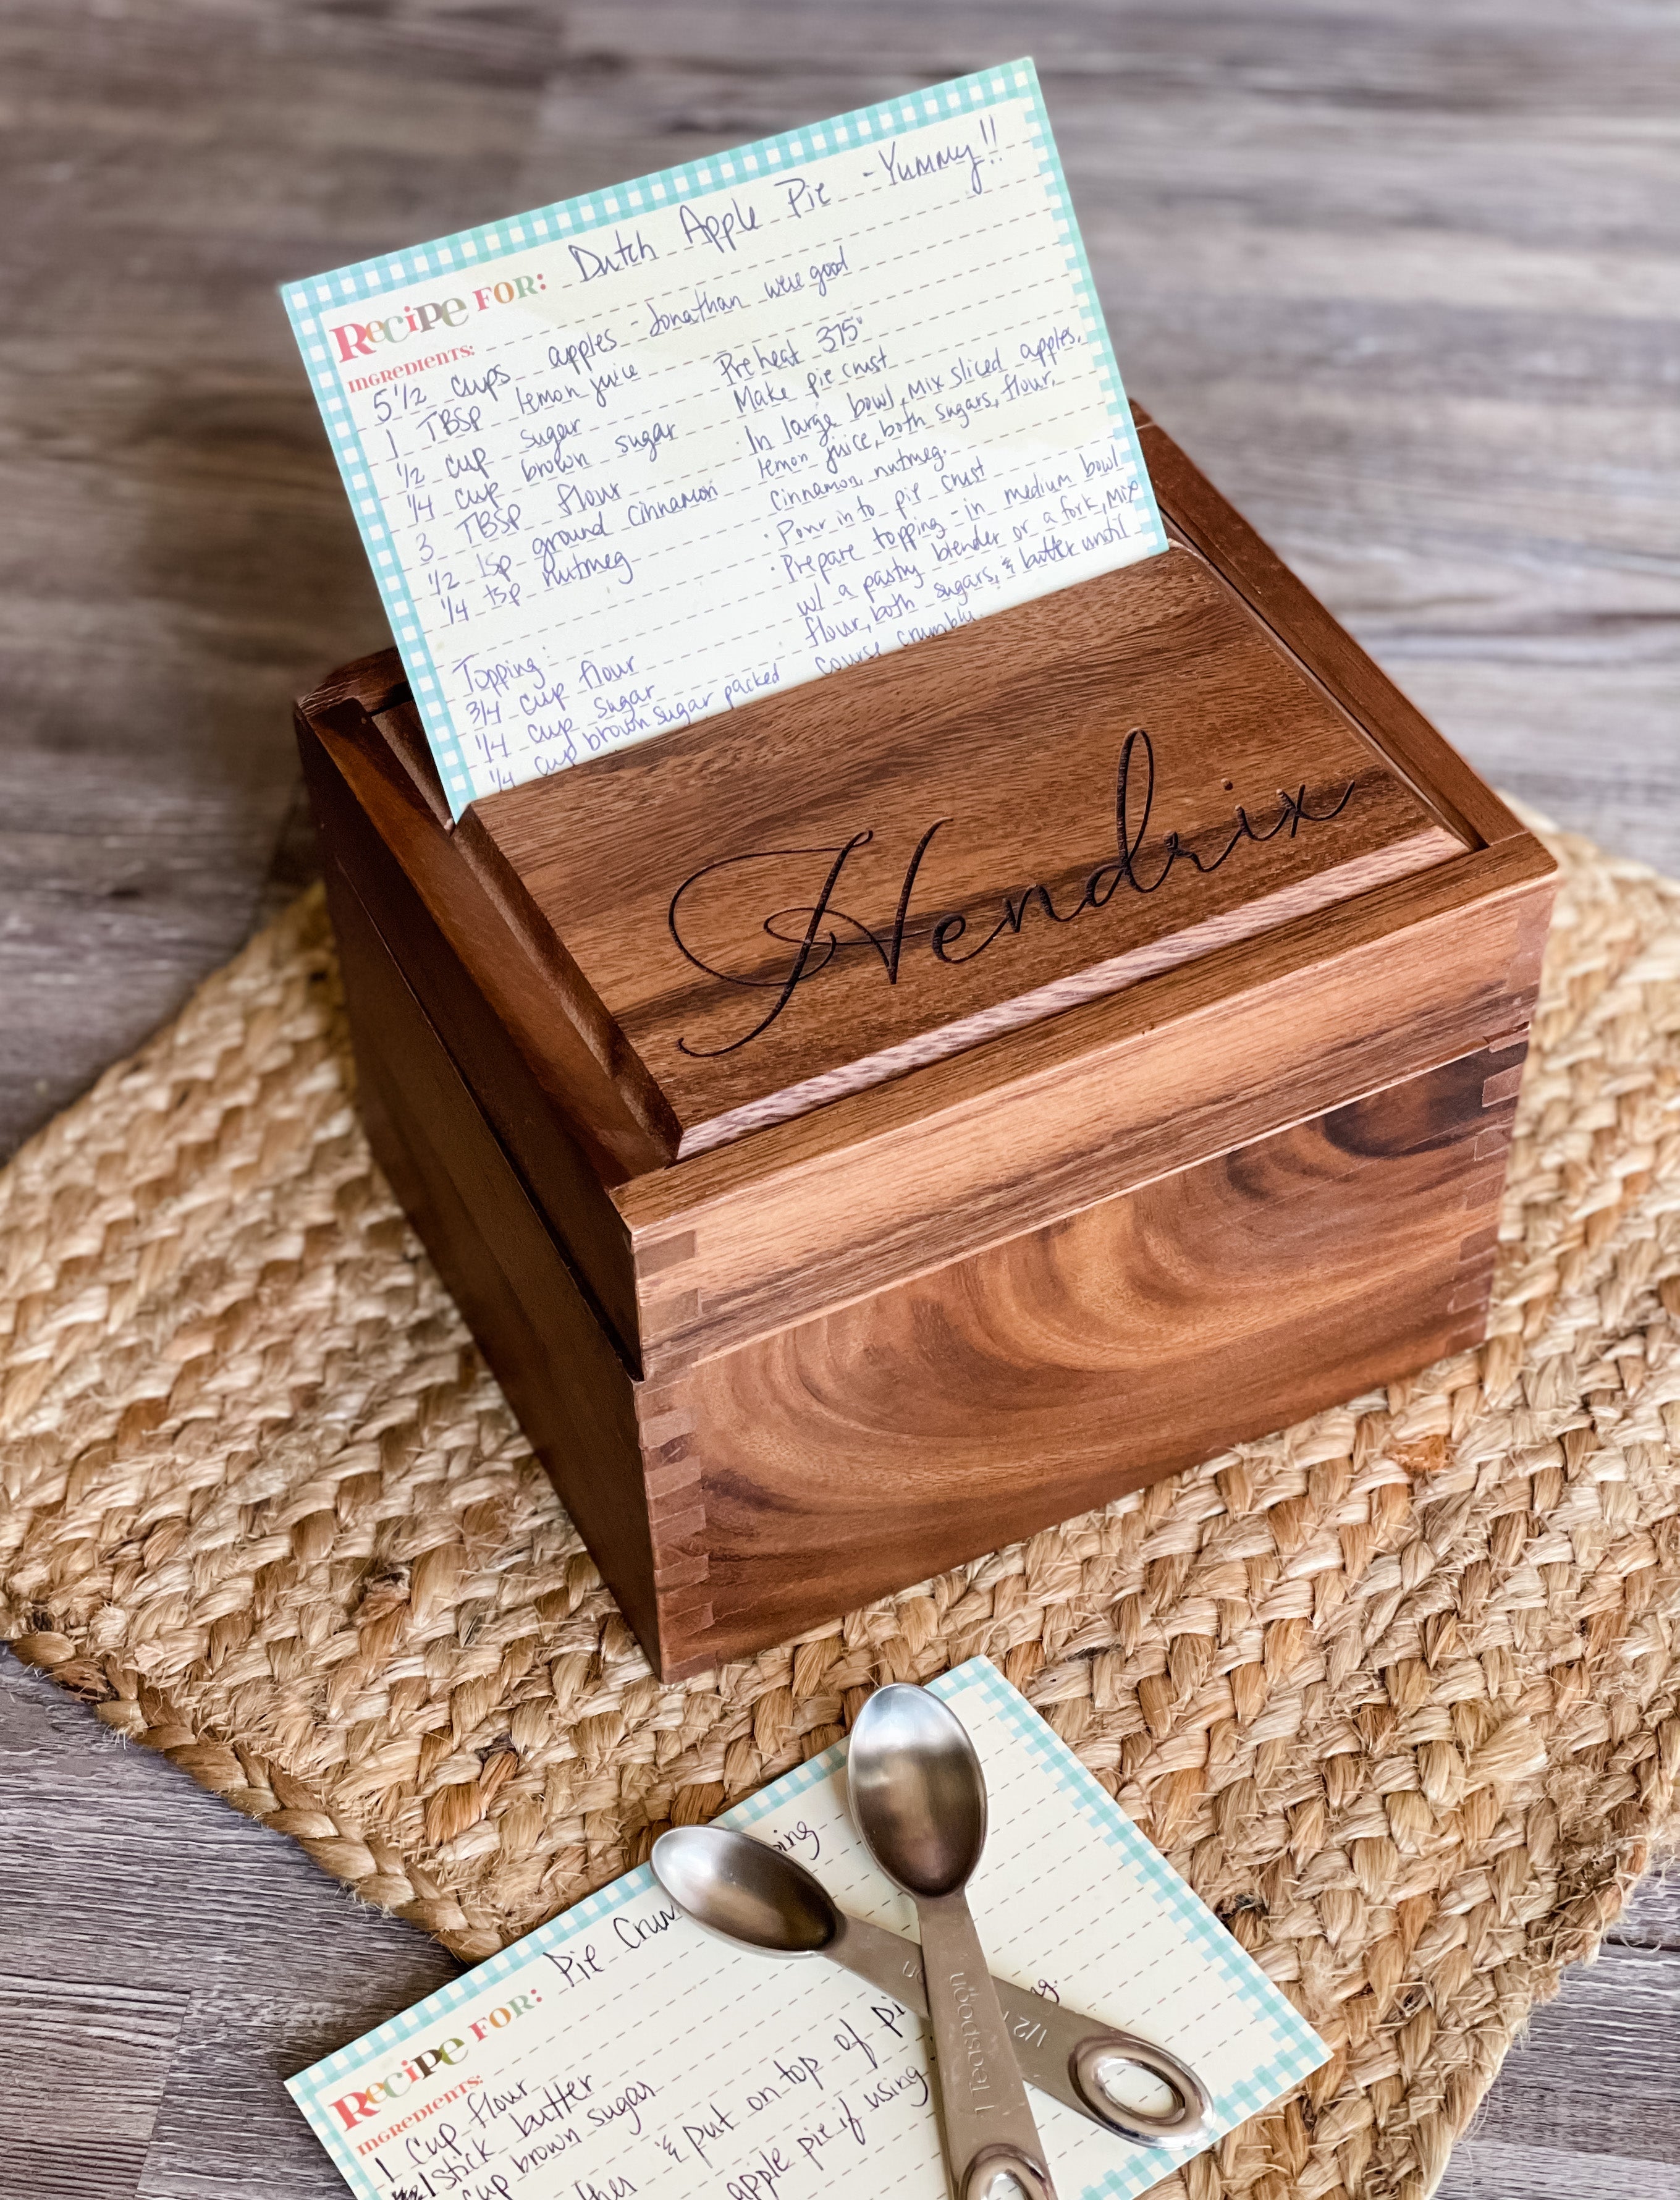 Recipe for: Dutch Apple Pie - Yummy!!
Ingredients:
5 1/2 cups apples - Jonathan were good
1 TBSP lemon juice
1/2 cup sugar
1/4 cup brown sugar
3 TBSP flour
1/2 tsp ground cinnamon
1/4 tsp nutmeg
Topping:
3/4 cup flour
1/4 cup sugar
1/4 cup brown sugar packed
Preheat 375°
Make pie crust
· In large bowl, mix sliced apples,
lemon juice, both sugars, flour,
cinnamon, nutmeg.
· Pour into pie crust
· Prepare topping - in medium bowl
w/ a pastry blender or a fork, mix
flour, both sugars, & butter until
course crumbly
Hendrix
Recipe for: Pie
Ingredients:
1 cup flour
1 stick butter
cup brown sugar
& put on top of
apple pie if using
1 Teaspoon
1/2